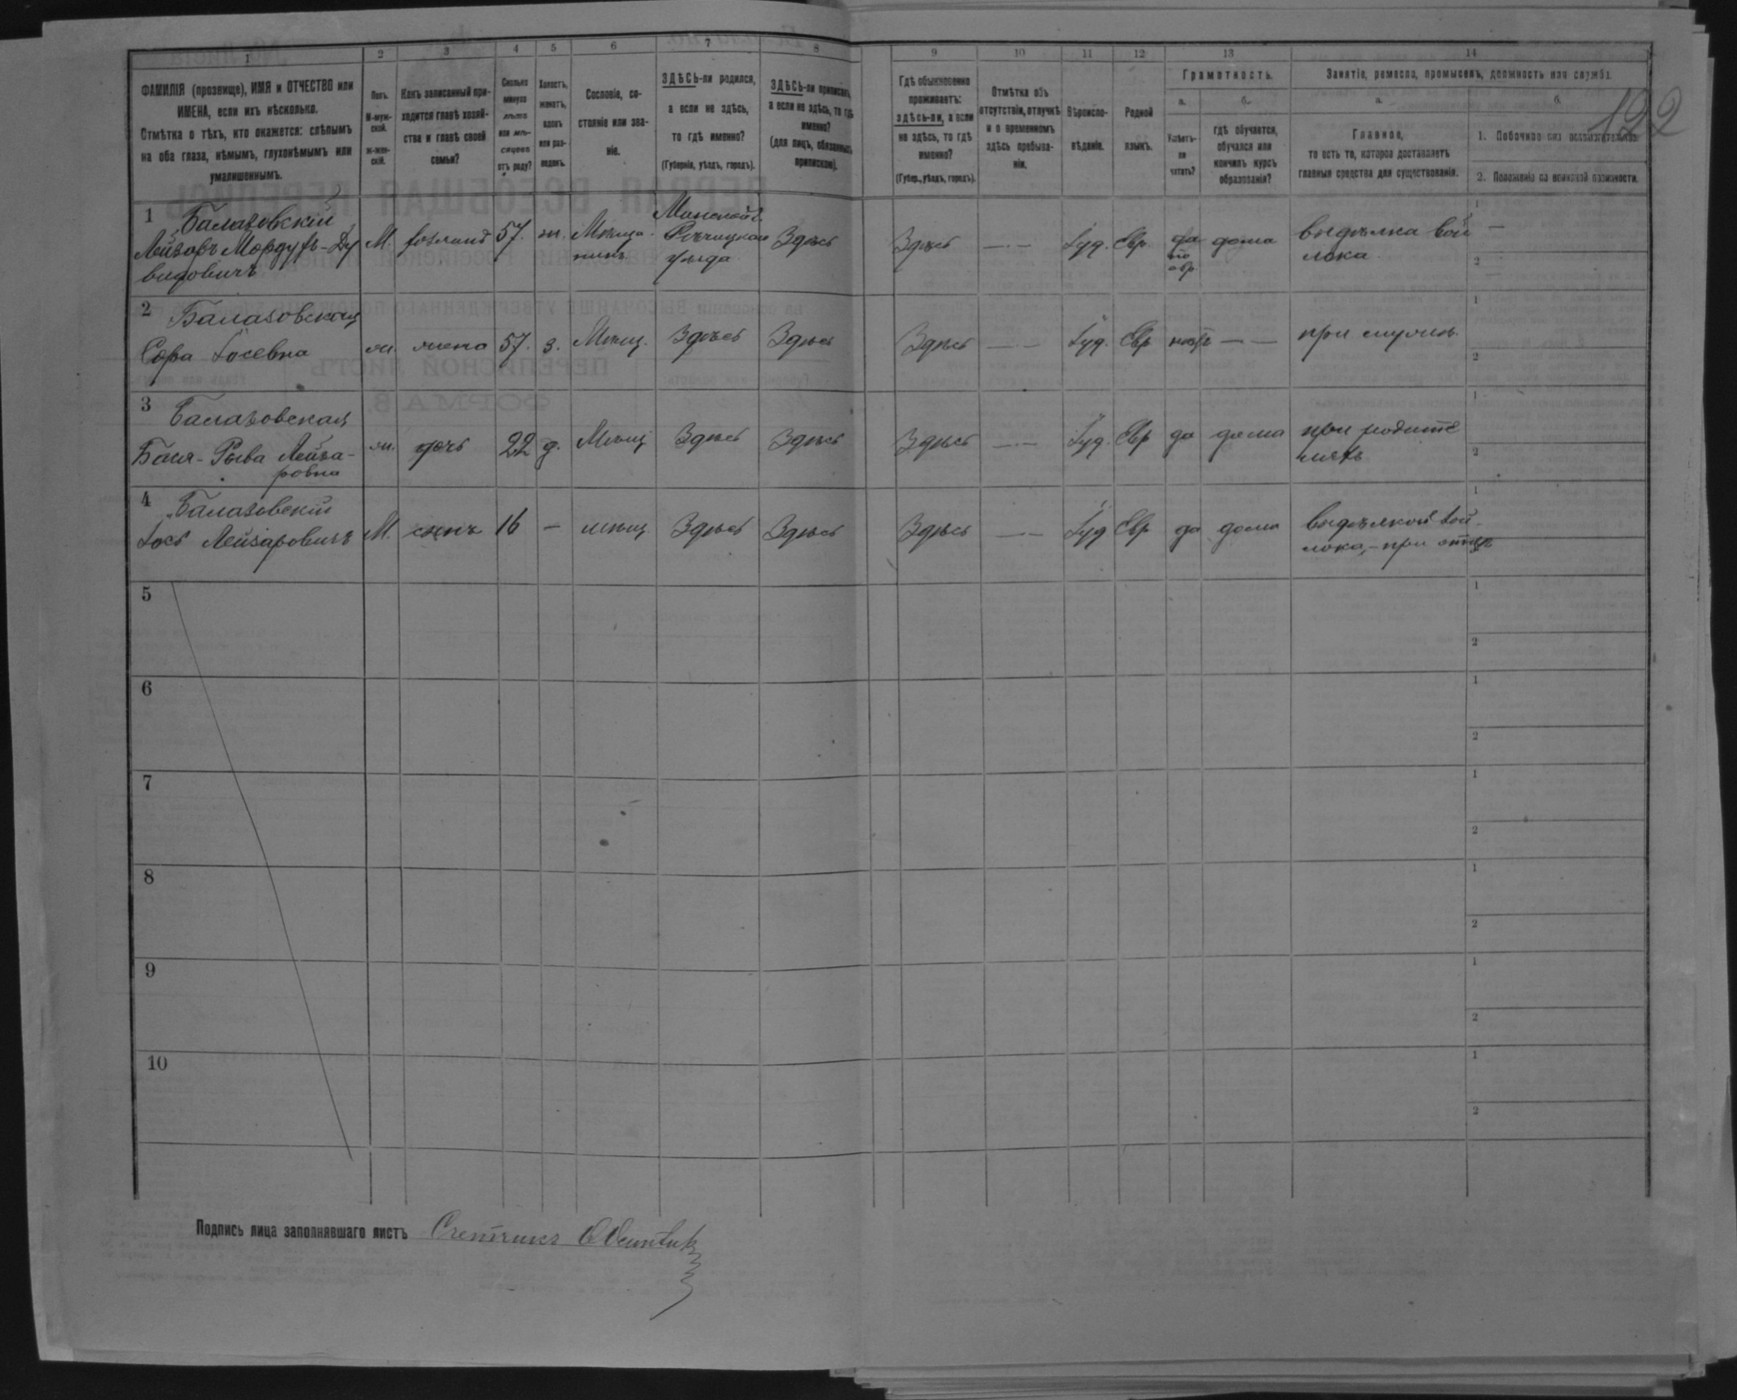 122
1 2 3 4 5 6 7 8 9 10 11 12 13 14
ФАМИЛІЯ (прозвище), ИМЯ и ОТЧЕСТВО или
ИМЕНА, если ихъ нѣсколько.
Отмѣтка о тѣхъ, кто окажется: слѣпымъ
на оба глаза, нѣмымъ, глухонѣмымъ или
умалишеннымъ.
Полъ.
М-муж-
ской.
Ж-жен-
скій.
Какъ записанный при-
ходится главѣ хозяй-
ства и главѣ своей
семьи?
Сколько
минуло
лѣтъ
или мѣ-
сяцевъ
отъ роду?
Холостъ,
женатъ,
вдовъ
или раз-
веденъ.
Сословіе, со-
стояніе или зва-
ніе.
ЗДѢСЬ-ли родился,
а если не здѣсь,
то гдѣ именно?
(Губернія, уѣздъ, городъ).
ЗДѢСЬ-ли приписанъ,
а если не здѣсь, то гдѣ
именно?
(для лицъ, обязанныхъ
припиской).
Гдѣ обыкновенно
проживаетъ:
здѣсь-ли, а если
не здѣсь, то гдѣ
именно?
(Губер., уѣздъ, городъ).
Отмѣтка объ
отсутствіи, отлучкѣ
и о временномъ
здѣсь пребыва-
ніи.
Вѣроиспо-
вѣданіе.
Родной
языкъ.
Грамотность.
а.
Умѣетъ-
ли
читать?
б.
гдѣ обучается,
обучался или
кончилъ курсъ
образованія?
Занятіе, ремесло, промыселъ, должность или служба.
а.
Главное,
то есть то, которое доставляетъ
главныя средства для существованія.
б.
1. Побочное или вспомогательное.
2. Положеніе по воинской повинности.
1 Балазовскій
Лейзаръ Мордухъ-Ду
видовичъ
М. хозяинъ 57. ж. Мѣща-
нинъ
Минской г.
Рѣчицкаго
уѣзда
Здѣсь Здѣсь — Іуд. Евр. да
по
евр.
дома выдѣлка вой
лока
—
2 Балазовская
Сора Іосевна ж. жена 57. з. Мѣщ. Здѣсь Здѣсь Здѣсь — Іуд. Евр нѣтъ — — при мужѣ
3 Балазовская
Бася-Рыва Лейза-
ровна
ж. дочь 22 д. Мѣщ Здѣсь Здѣсь Здѣсь — Іуд. Евр да дома при родите
ляхъ
4 Балазовскій
Іось Лейзаровичъ М. сынъ 16 — мѣщ Здѣсь Здѣсь Здѣсь — Іуд Евр да дома выдѣлкой вой-
лока,-при отцѣ
5
6
7
8
9
10
Подпись лица заполнявшаго листъ Счетчикъ